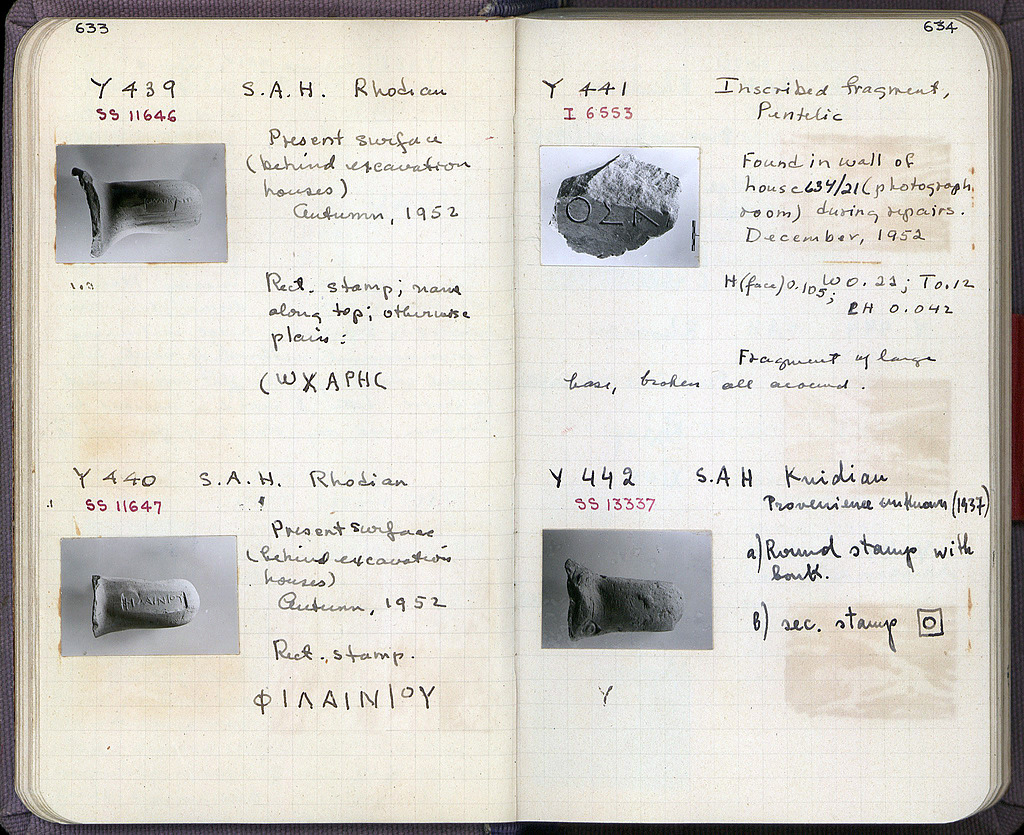 633
Y 439 S.A.H. Rhodian
SS 11646
Present surface
(behind excavation
houses)
Autumn, 1952
Rect. stamp; name
along top; otherwise
plain:
(WXAPHC
Y 440 S.A.H. Rhodian
SS 11647
Present surface
(behind excavation
houses)
Autumn, 1952
Rect. stamp.
ΦΙΛΑΙΝΙΟΥ
ΦΙΛΑΙΝΙΟΥ
634
Y 441 Inscribed fragment,
I 6553 Pentelic
ΟΣΛ
Found in wall of
house 634/21 (photograph
room) during repairs.
December, 1952
H (face) 0.105; W 0.21; T 0.12
LH 0.042
Fragment of large
base, broken all around.
Y 442 S.A.H Knidian
SS 13337 Provenience unknown (1937)
a) Round stamp with
b) sec. stamp
Y